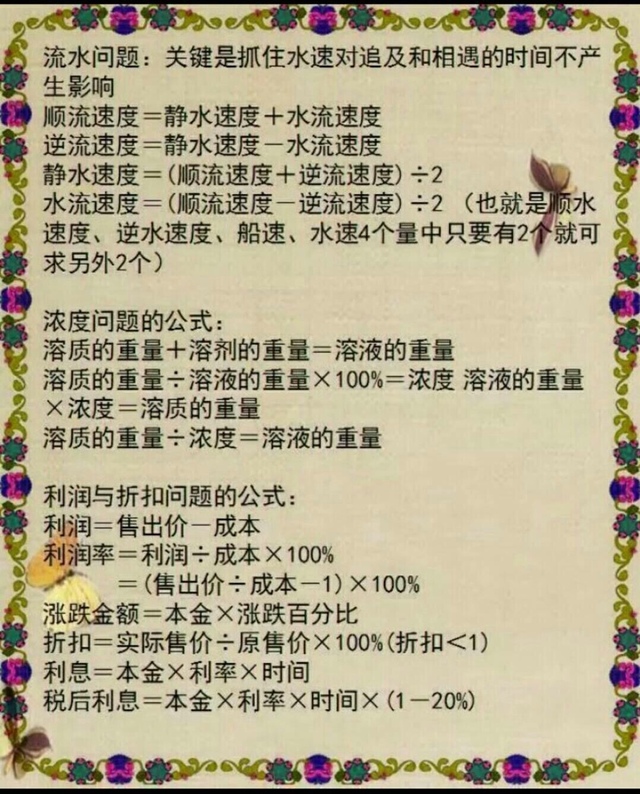 流水问题：关键是抓住水速对追及和相遇的时间不产
生影响
顺流速度＝静水速度＋水流速度
逆流速度＝静水速度－水流速度
静水速度＝(顺流速度＋逆流速度)÷2
水流速度＝(顺流速度－逆流速度)÷2 （也就是顺水
速度、逆水速度、船速、水速4个量中只要有2个就可
求另外2个）
浓度问题的公式：
溶质的重量＋溶剂的重量＝溶液的重量
溶质的重量÷溶液的重量×100%＝浓度 溶液的重量
×浓度＝溶质的重量
溶质的重量÷浓度＝溶液的重量
利润与折扣问题的公式：
利润＝售出价－成本
利润率＝利润÷成本×100%
＝(售出价÷成本－1)×100%
涨跌金额＝本金×涨跌百分比
折扣＝实际售价÷原售价×100%(折扣＜1)
利息＝本金×利率×时间
税后利息＝本金×利率×时间×(1－20%)